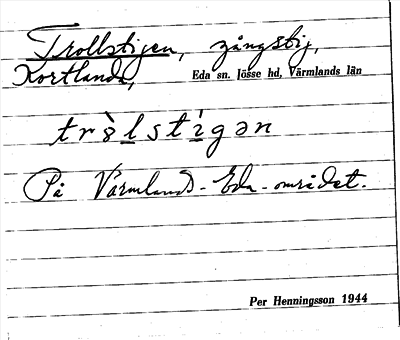 Trollstigen, gångstig,
Kortlanda, Eda sn. Jösse hd, Värmlands län
trò̀lstìgən
På Värmlands-Eda-området.
Per Henningsson 1944